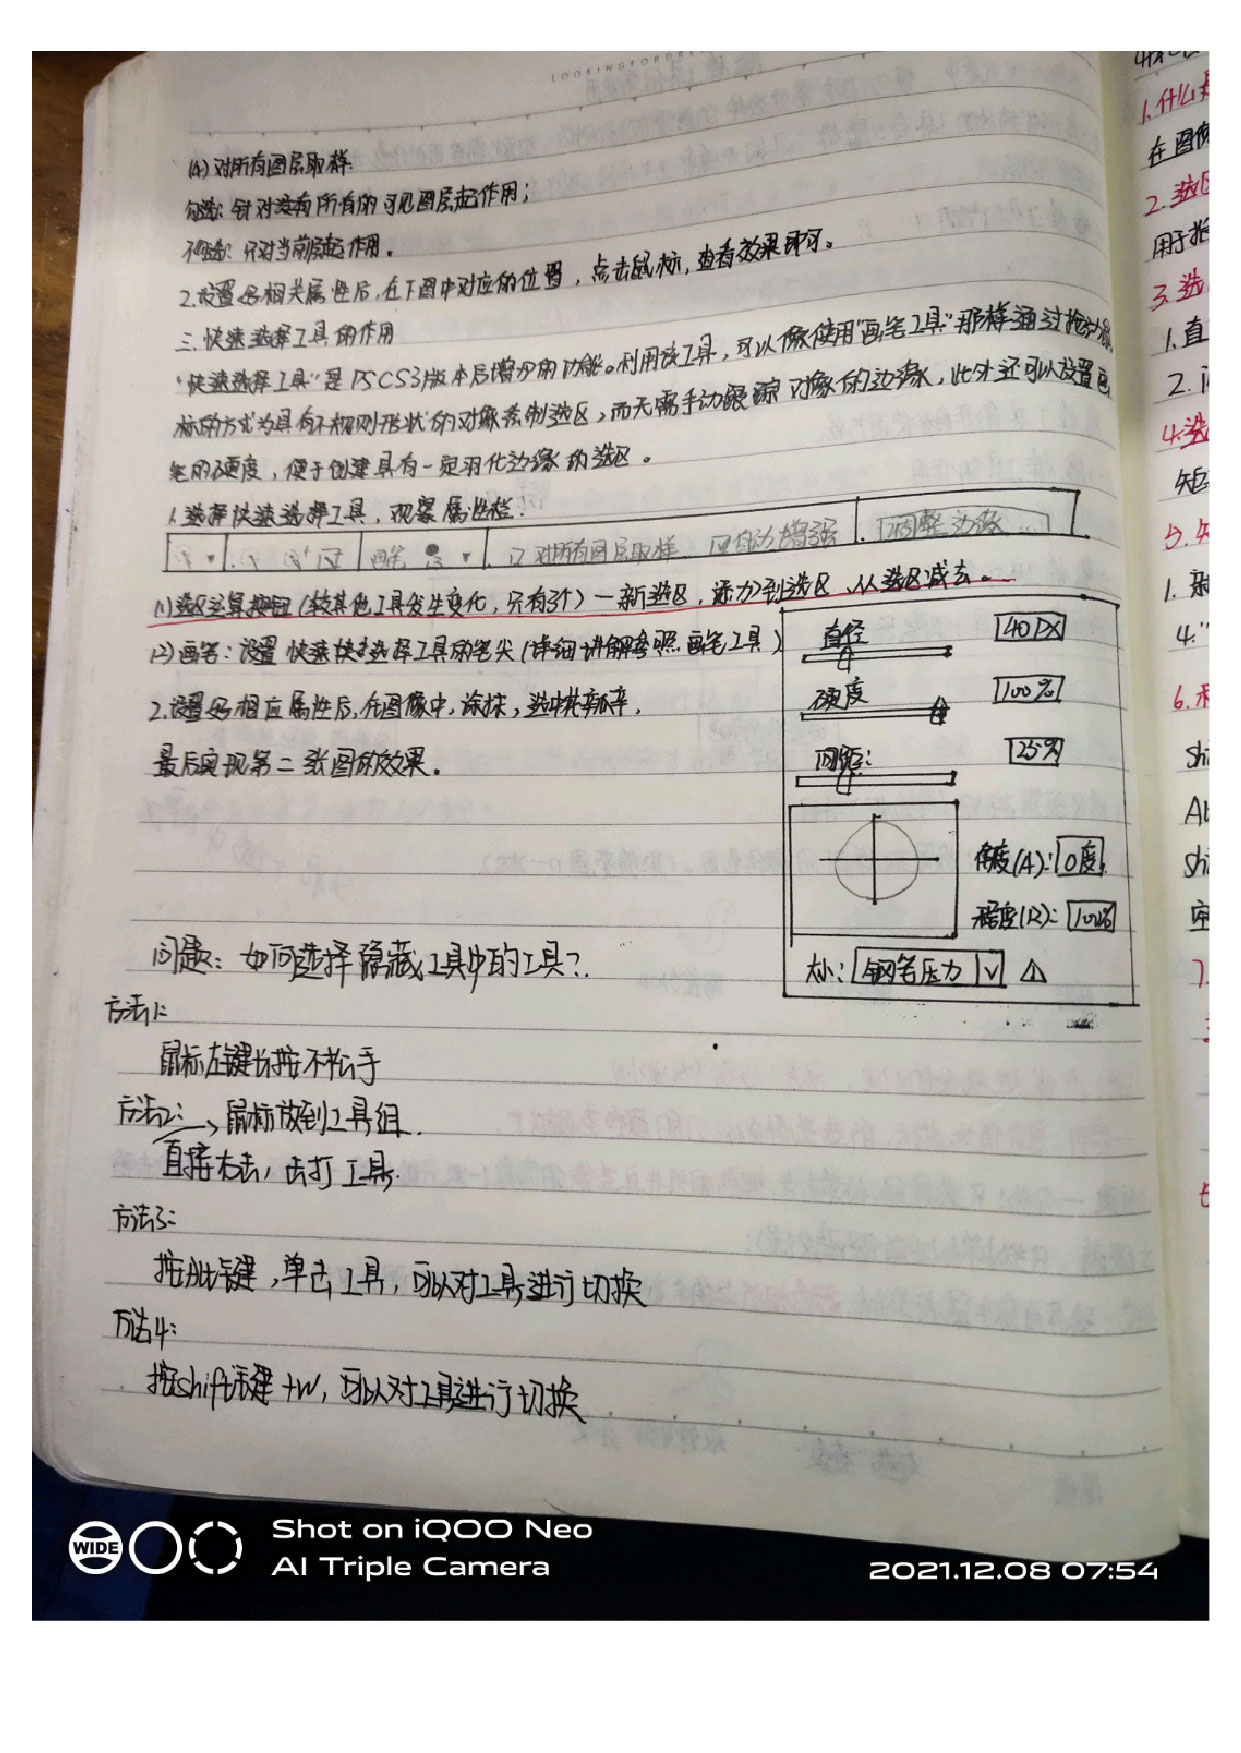 LOOKINGFORDREAM
(4)对所有图层取样
勾选:针对所有的可见图层起作用;
不勾选:只对当前层起作用。
2.设置好相关属性后,在下图中对应的位置,点击鼠标,查看效果即可。
三.快速选择工具的作用
"快速选择工具"是PSCS3版本后增加的功能。利用该工具,可以像使用"画笔工具"那样通过拖动鼠
标的方式为具有不规则形状的对象绘制选区,而无需手动跟踪对象的边缘,此外还可以放置画
笔的硬度,便于创建具有一定羽化边缘的选区。
1.选择快速选择工具,观察属性栏.
画笔 口对所有图层取样 自动增强 调整边缘...
(1)选区运算按钮(较其他工具发生变化,只有3个)一新选区,添加到选区,从选区减去。
(2)画笔:设置快速选择工具的笔尖(详细讲解参照画笔工具)
2.设置好相应属性后,在图像中,涂抹,选中花瓣,
最后实现第二张图的效果。
直径 40PX
硬度 100%
间距: 25%
角度(A):0度
圆度(R):100%
大小:钢笔压力
问题:如何选择隐藏工具中的工具?
方法1:
鼠标左键长按不松手
方法2:→鼠标放到工具组.
直接右击,击打工具.
方法3:
按Alt键,单击工具,可以对工具进行切换
方法4:
按shift键+W,可以对工具进行切换
1.什么是
在图像
2.选区
用于
3.选
1.直
2.
4.选
矩
5.矢
1.
4."
6.
Shi
Al
Shi
空
7.
WIDE
Shot on iQOO Neo
AI Triple Camera
2021.12.08 07:54